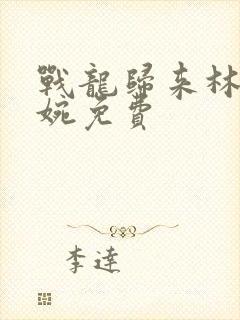 戰龍歸来林
婉免費
李達